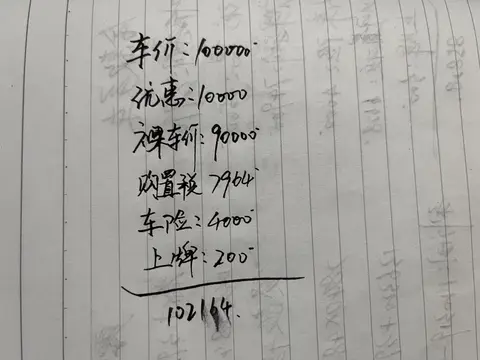 车价：100000
优惠：10000
裸车价：90000
购置税 7964
车险：4000
上牌：200
102164.